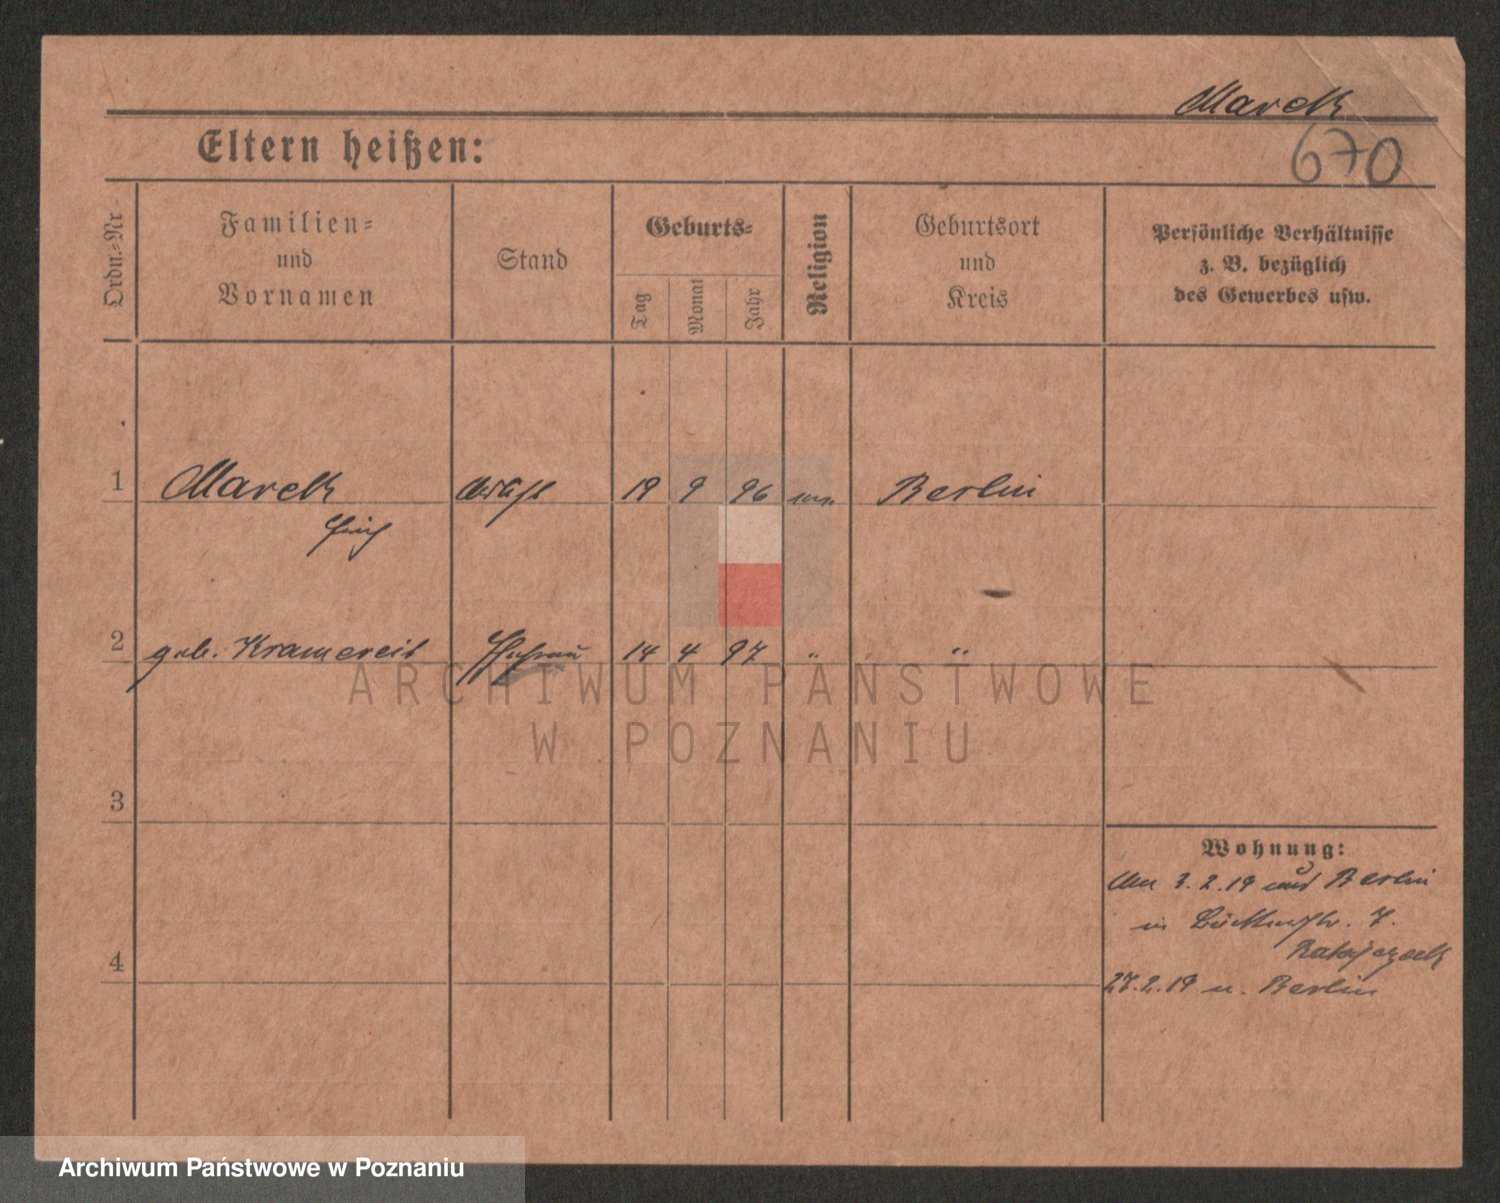 Marek
670
Eltern heißen:
Ordn.-Nr.
Familien-
und
Vornamen
Stand
Geburts-
Tag
Monat
Jahr
Religion
Geburtsort
und
Kreis
Persönliche Verhältnisse
z. B. bezüglich
des Gewerbes usw.
1 Marek 19 9 96 Berlin
2 geb. Kramereit 14 4 97 " "
3
4
Wohnung:
3.2.19 aus Berlin
in 7.
Ratajczack
27.2.19 n. Berlin
ARCHIWUM PAŃSTWOWE
W POZNANIU
Archiwum Państwowe w Poznaniu